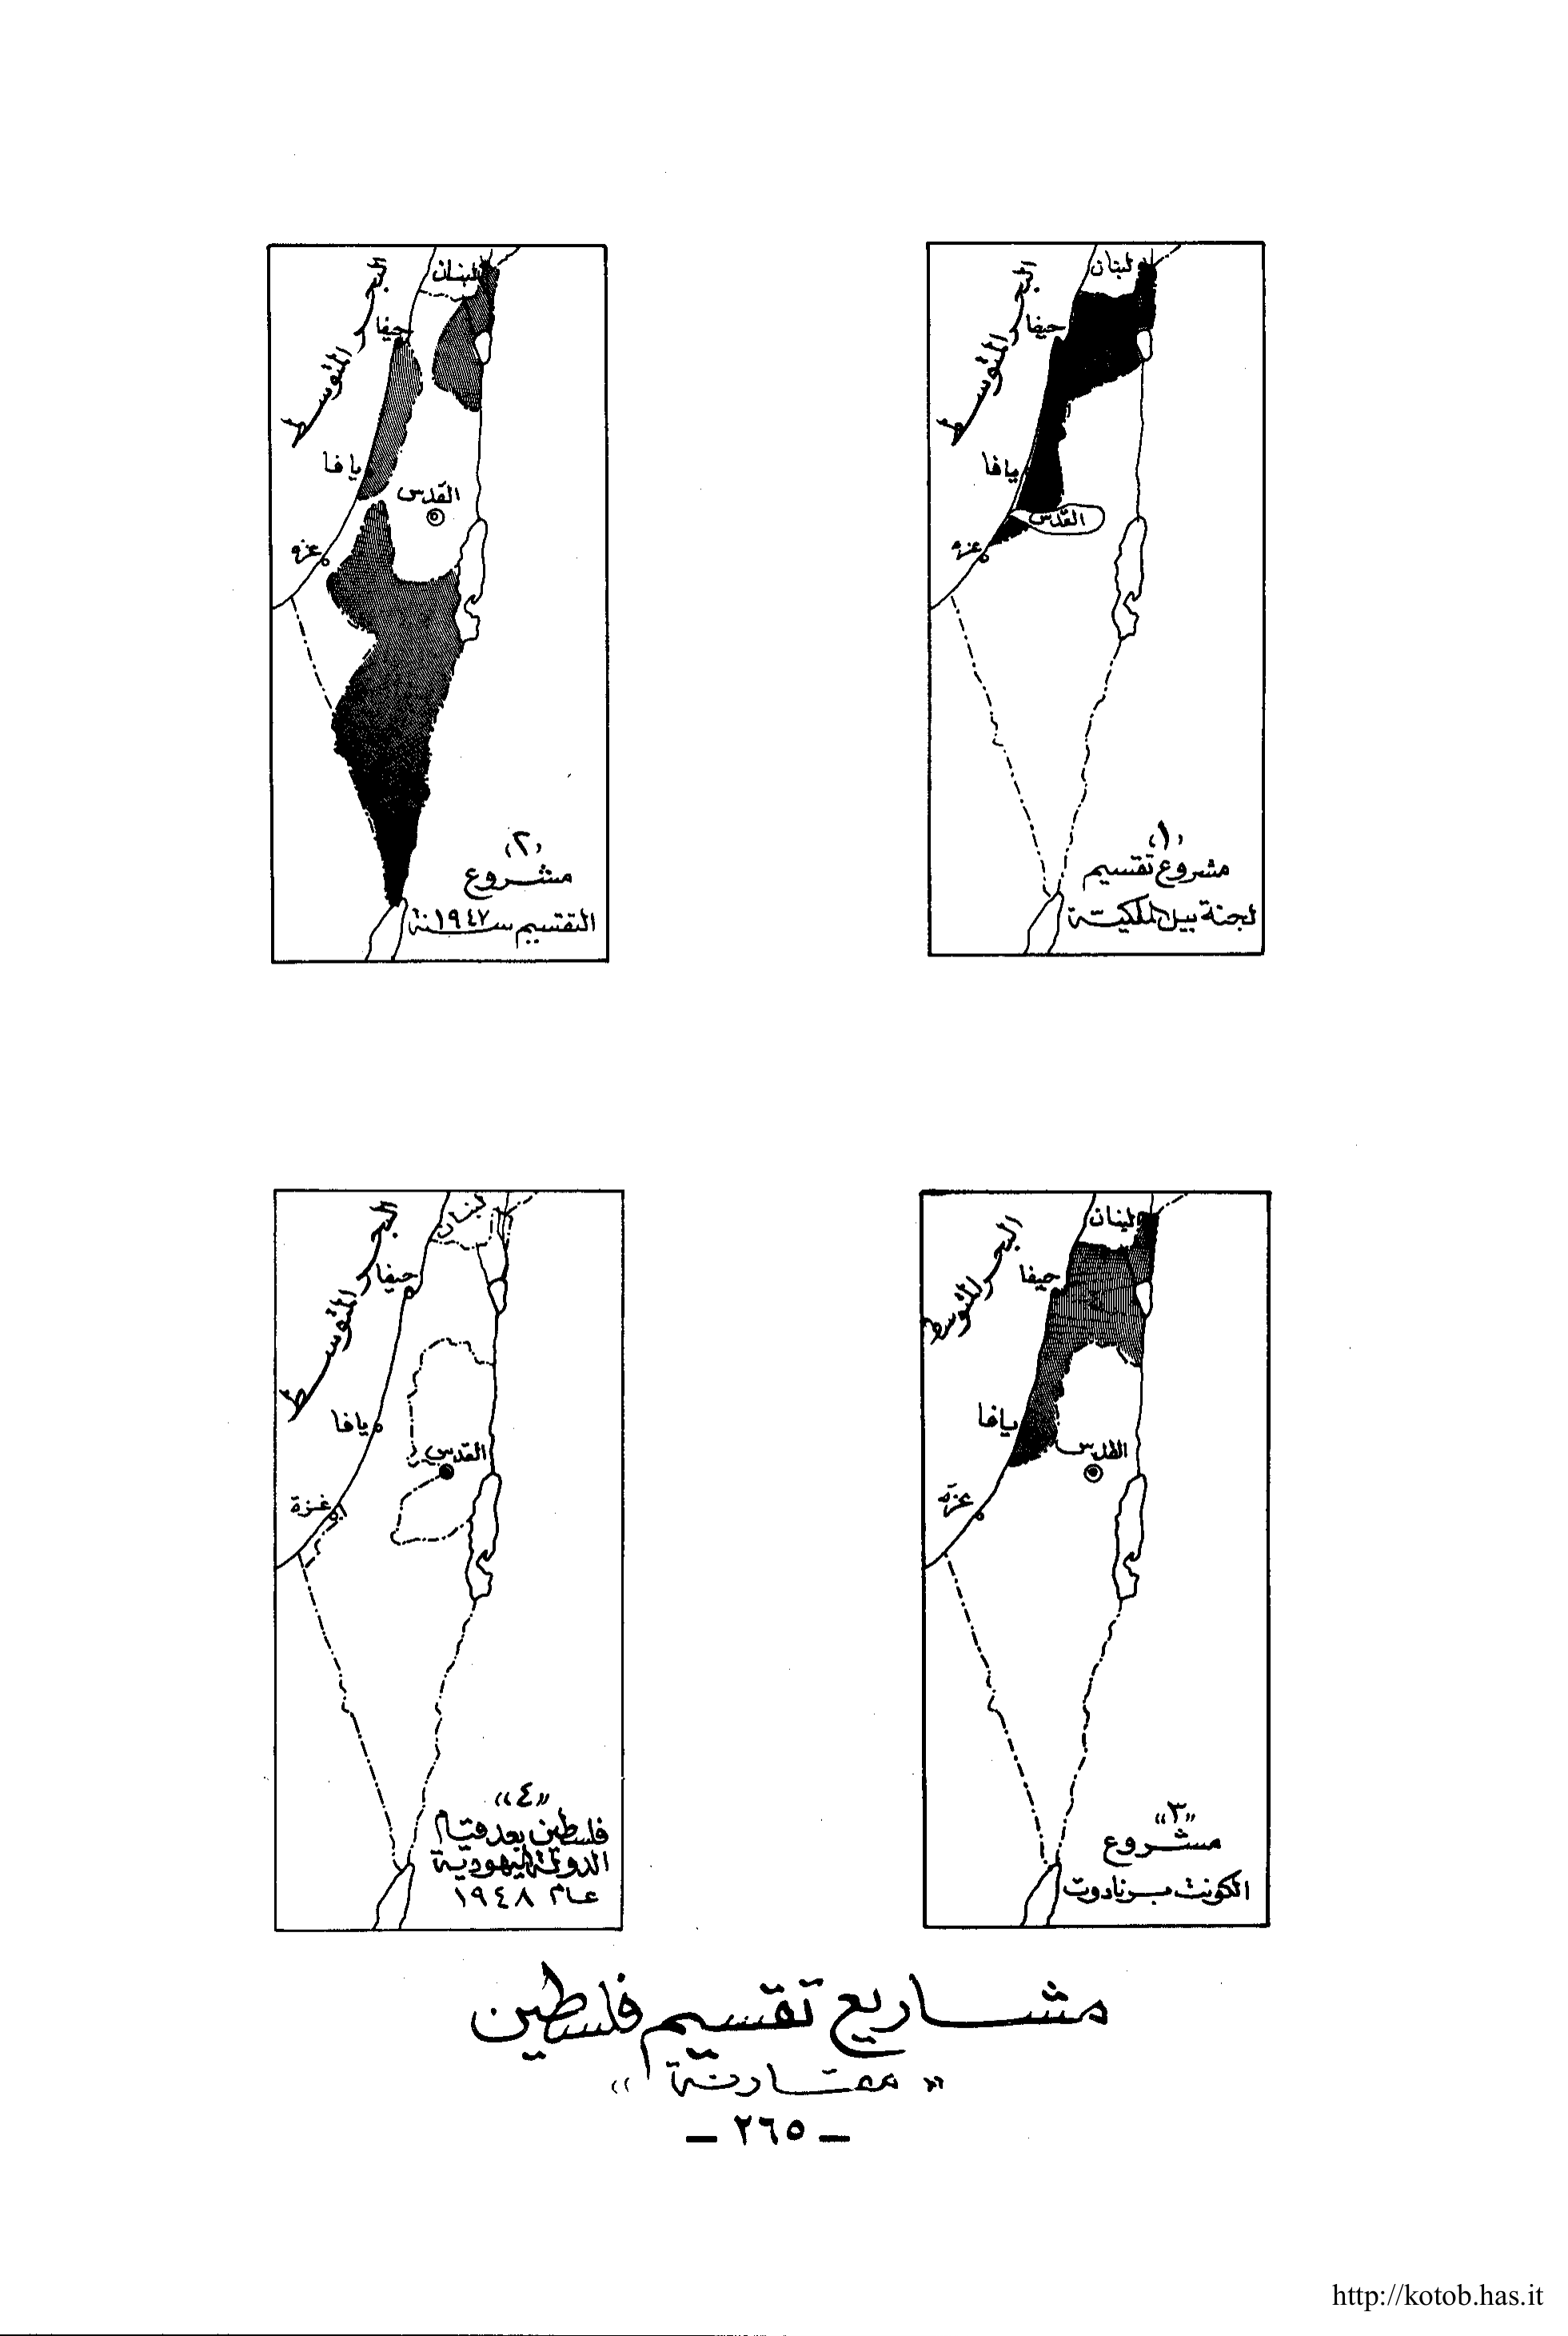 لبنان
البحر المتوسط
حيفا
يافا
القدس
غزه
(١)
مشروع تقسيم
لجنة بيل الملكية
لبنان
البحر المتوسط
حيفا
يافا
القدس
غزه
(٢)
مشروع
التقسيم سنة ١٩٤٧
لبنان
البحر المتوسط
حيفا
يافا
القدس
غزة
«٣»
مشروع
الكونت برنادوت
لبنان
البحر المتوسط
حيفا
يافا
القدس
غزة
«٤»
فلسطين بعد قيام
الدولة اليهودية
عام ١٩٤٨
مشاريع تقسيم فلسطين
« مقارنة »
– ٢٦٥ –
http://kotob.has.it